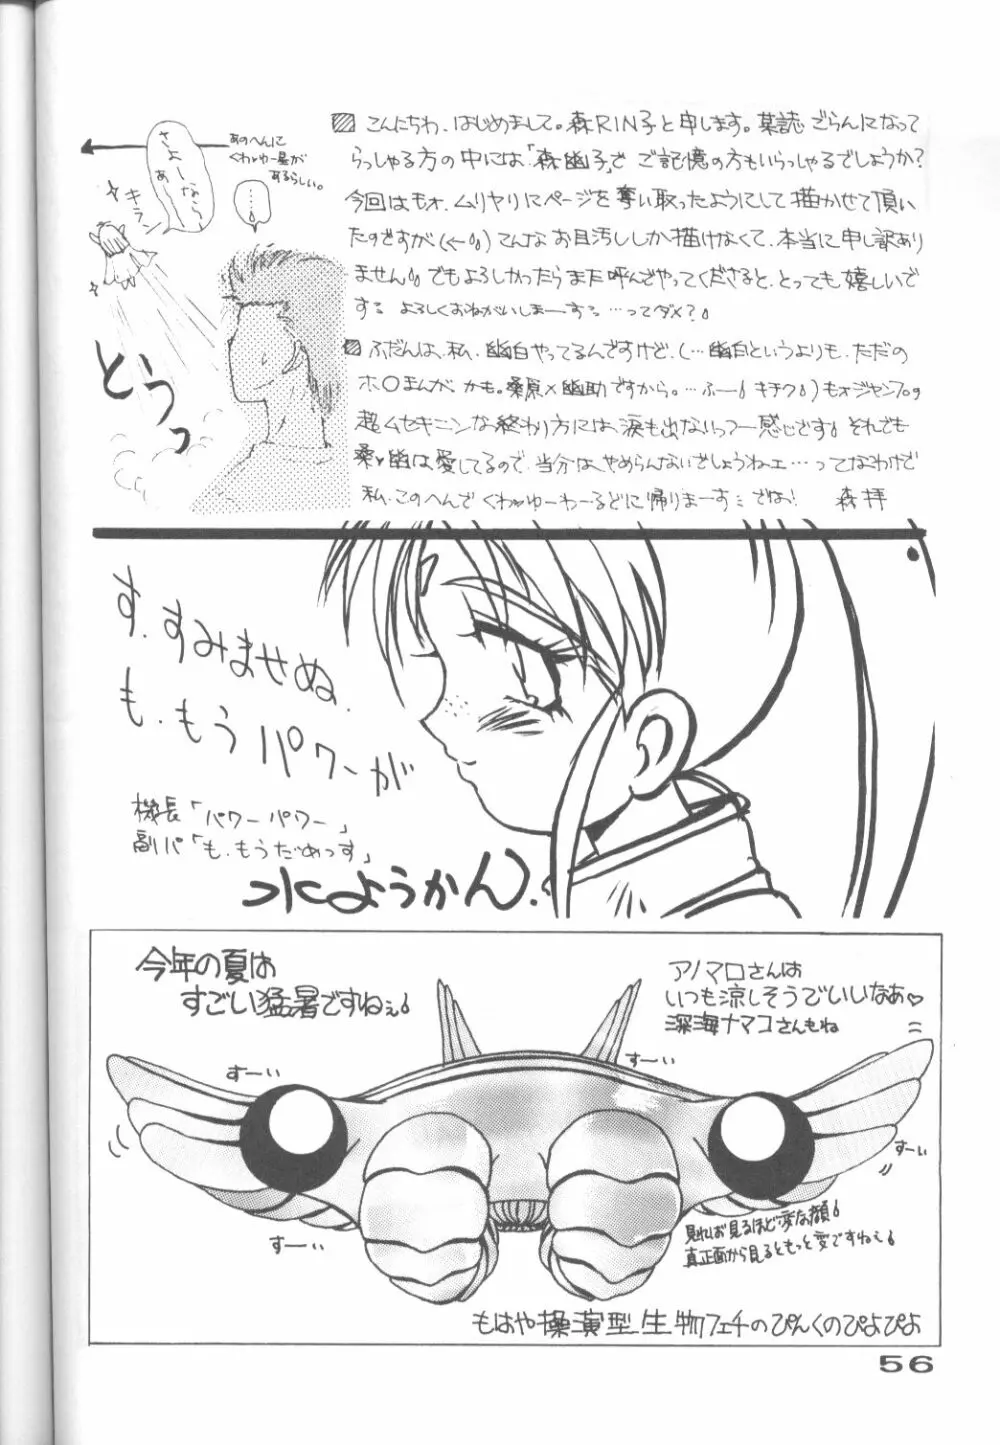 こんにちわ、はじめまして。森RIN子と申します。某誌ごらんになって
らっしゃる方の中には、「森幽子」でご記憶の方もいらっしゃるでしょうか?
今回はもォ、ムリヤリにページを奪い取ったようにして描かせて頂い
たのですが、こんなお目汚ししか描けなくて、本当に申し訳あり
ません。でもよろしかったらまた呼んでやってくださると、とっても嬉しいで
する よろしくおねがいしまーする…ってダメ?
ふだんは、私、幽白やってるんですけど、(…幽白というよりも、ただの
ホ〇まんが、かも。桑原×幽助ですから。…ふー キチク)もォジャンプの
超ムセキニンな終わり方には、涙も出ないっつー感じです。それでも
桑♥幽は愛してるので、当分は、やめらんないでしょうねェ…ってなわけで
私、このへんでくわゆーわーるどに帰りまーす ではっ! 森拝
あのへんに
くわゆー星が
あるらしい。
さよーなら
あ〜
……
キラン
とうっ
す、すみませぬ、
も、もうパワーが
機長「パワーパワー」
副パ「も、もうだめっす」
水ようかん
今年の夏は
すごい猛暑ですねぇ
アノマロさんは
いつも涼しそうでいいなあ♡
深海ナマコさんもね
すーい
すーい
すーい
すーい
見れば見るほど変な顔
真正面から見るともっと変ですねぇ
もはや操演型生物フェチのぴんくのぴよぴよ
56